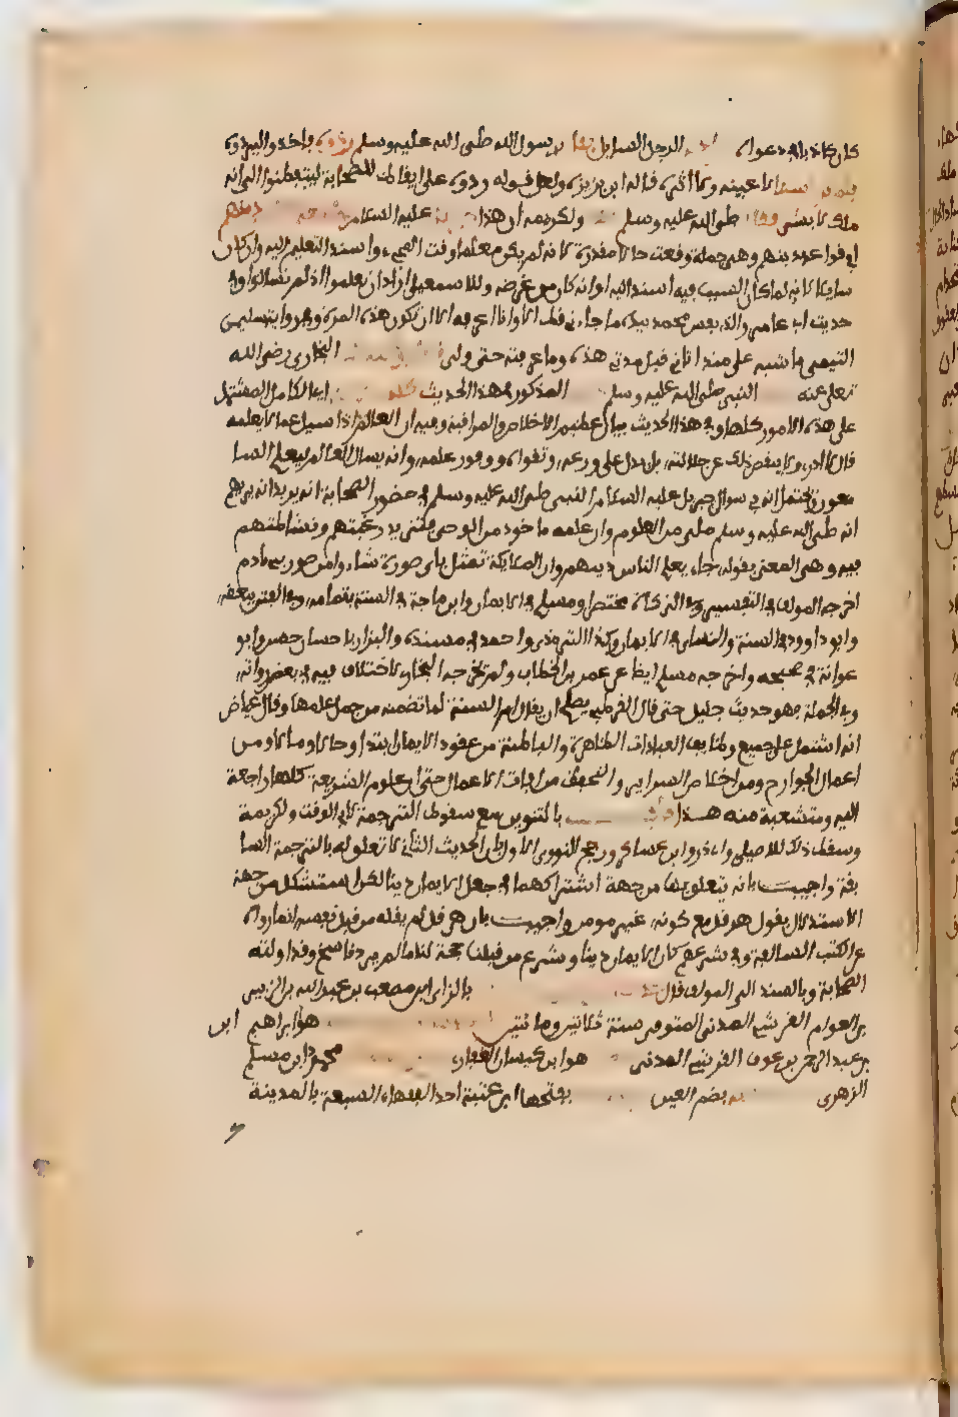 كان كاذبا في دعواه الرجل السايل فقال رسول الله صلى الله عليه وسلم ردوه فاخذوا ليردوه
فلم يروا شيئا لا عينه ولا اثره قاله ابن بزيزة ولعل قوله ردوه على ايقاظ للصحابة ليتفطنوا الى انه
ملك لا بشر فقال صلى الله عليه وسلم ولكريمة ان هذا عليه السلام جاء دينهم
اي قواعد دينهم وهي جملة وقعت حالا مقدرة لانه لم يكن معلما وقت المجيء واسند التعليم اليه وان كان
سايلا لانه لما كان السبب فيه اسنده اليه او انه كان من غرضه وللاسمعيلي اراد ان تعلموا اذ لم تسالوا وفي
حديث ابي عامر والذي نفس محمد بيده ما جاءني قط الا وانا اعرفه الا ان تكون هذه المرة وفي رواية سليمن
التيمي ما شبه علي منذ اتاني قبل مرتي هذه وما عرفته حتى ولى البخاري رضي الله
تعالى عنه النبي صلى الله عليه وسلم المذكور في هذا الحديث كله اي الكامل المشتمل
على هذه الامور كلها وفي هذا الحديث بيان عظيم الاخلاص والمراقبة وفيه ان العالم اذا سيل عما لا يعلمه
قال لا ادري ولا ينقص ذلك من جلالته بل يدل على ورعه وتقواه ووفور علمه وانه يسال العالم ليعلم السا
معون ويحتمل ان في سوال جبريل عليه السلام النبي صلى الله عليه وسلم في حضور الصحابة انه يريد ان يريهم
انه صلى الله عليه وسلم ملي من العلوم وان علمه ماخوذ من الوحي فتزيد رغبتهم ونشاطهم
فيه وهو المعني بقوله جاء يعلم الناس دينهم وان الملايكة تمثل باي صورة شاءوا من صور بني ادم
اخرجه المولف في التفسير وفي الزكاة مختصرا ومسلم في الايمان وابن ماجة في السنة بتمامه وفي الفتن ببعضه
وابو داوود في السنة والنساي في الايمان وكذا الترمذي واحمد في مسنده والبزار باسناد حسن وابو
عوانة في صحيحه واخرجه مسلم ايضا عن عمر بن الخطاب ولم يخرجه البخاري لاختلاف فيه في بعض رواته
وبالجملة فهو حديث جليل حتى قال القرطبي يصلح ان يقال له ام السنة لما تضمنه من جمل علمها وقال عياض
انه اشتمل على جميع وظايف العبادات الظاهرة والباطنة من عقود الايمان ابتداء وحالا ومالا ومن
اعمال الجوارح ومن اخلاص السراير والتحفظ من افات الاعمال حتى ان علوم الشريعة كلها راجعة
اليه ومتشعبة منه هذا باب بالتنوين مع سقوط الترجمة لابي الوقت ولكريمة
وسقط ذلك للاصيلي وابي ذر وابن عساكر ورجح النووي الاول بان الحديث الثاني لا تعلق له بالترجمة السا
بقة واجيب بانه يتعلق بها من جهة اشتراكهما في جعل الايمان دينا لكن استشكل من جهة
الاستدلال بقول هرقل مع كونه غير مومن واجيب بان هرقل لم يقله من قبل نفسه انما رواه
عن الكتب السالفة وفي شرعهم كان الايمان دينا وشرع من قبلنا حجة لنا ما لم يرد ناسخ وقد اولته
الصحابة وبالسند الى المولف قال بالزاي ابن مصعب بن عبد الله بن الزبير
بن العوام القرشي المدني المتوفى سنة ثلاثين ومائتين هو ابراهيم ابن
بن عبد الرحمن بن عوف القرشي المدني هو ابن كيسان الغفاري محمد ابن مسلم
الزهري بضم العين بفتحها ابن عتبة احد الفقهاء السبعة بالمدينة